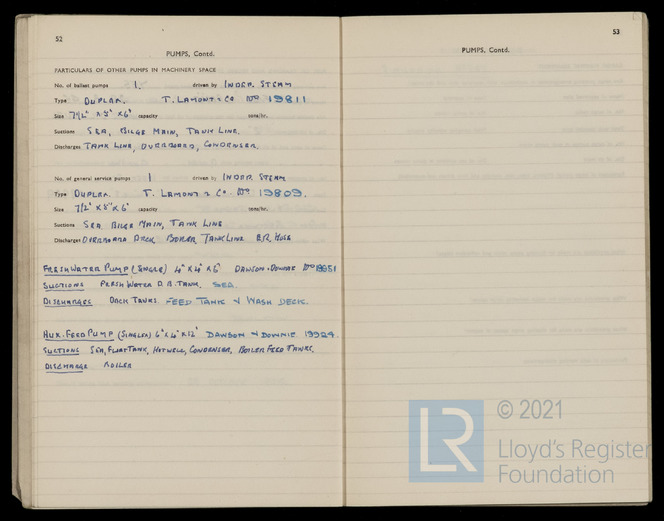 52
PUMPS, Contd.
PARTICULARS OF OTHER PUMPS IN MACHINERY SPACE
No. of ballast pumps 1. driven by INDEP. STEAM
Type DUPLEX. T. LAMONT & CO NO 19811
Size 7½" X 8" X 6" capacity tons/hr.
Suctions SEA, BILGE MAIN, TANK LINE.
Discharges TANK LINE, OVERBOARD, CONDENSER.
No. of general service pumps 1 driven by INDEP. STEAM
Type DUPLEX. T. LAMONT & CO. NO. 19809.
Size 7½" X 8" X 6" capacity tons/hr.
Suctions SEA BILGE MAIN, TANK LINE
Discharges OVERBOARD DECK BOILER TANK LINE E.R. HOSE
FRESH WATER PUMP (SINGLE) 4" X 4" X 6" DAWSON & DOWNIE NO
SUCTIONS FRESH WATER D.B. TANK. SEA.
DISCHARGES DECK TANKS FEED TANK & WASH DECK.
AUX. FEED PUMP (SINGLE) 6" X 4" X 12" DAWSON & DOWNIE 19924.
SUCTIONS SEA, FLOAT TANK, HOTWELL, CONDENSER, BOILER FEED TANKS.
DISCHARGE BOILER
53
PUMPS, Contd.
LR © 2021
Lloyd's Register
Foundation